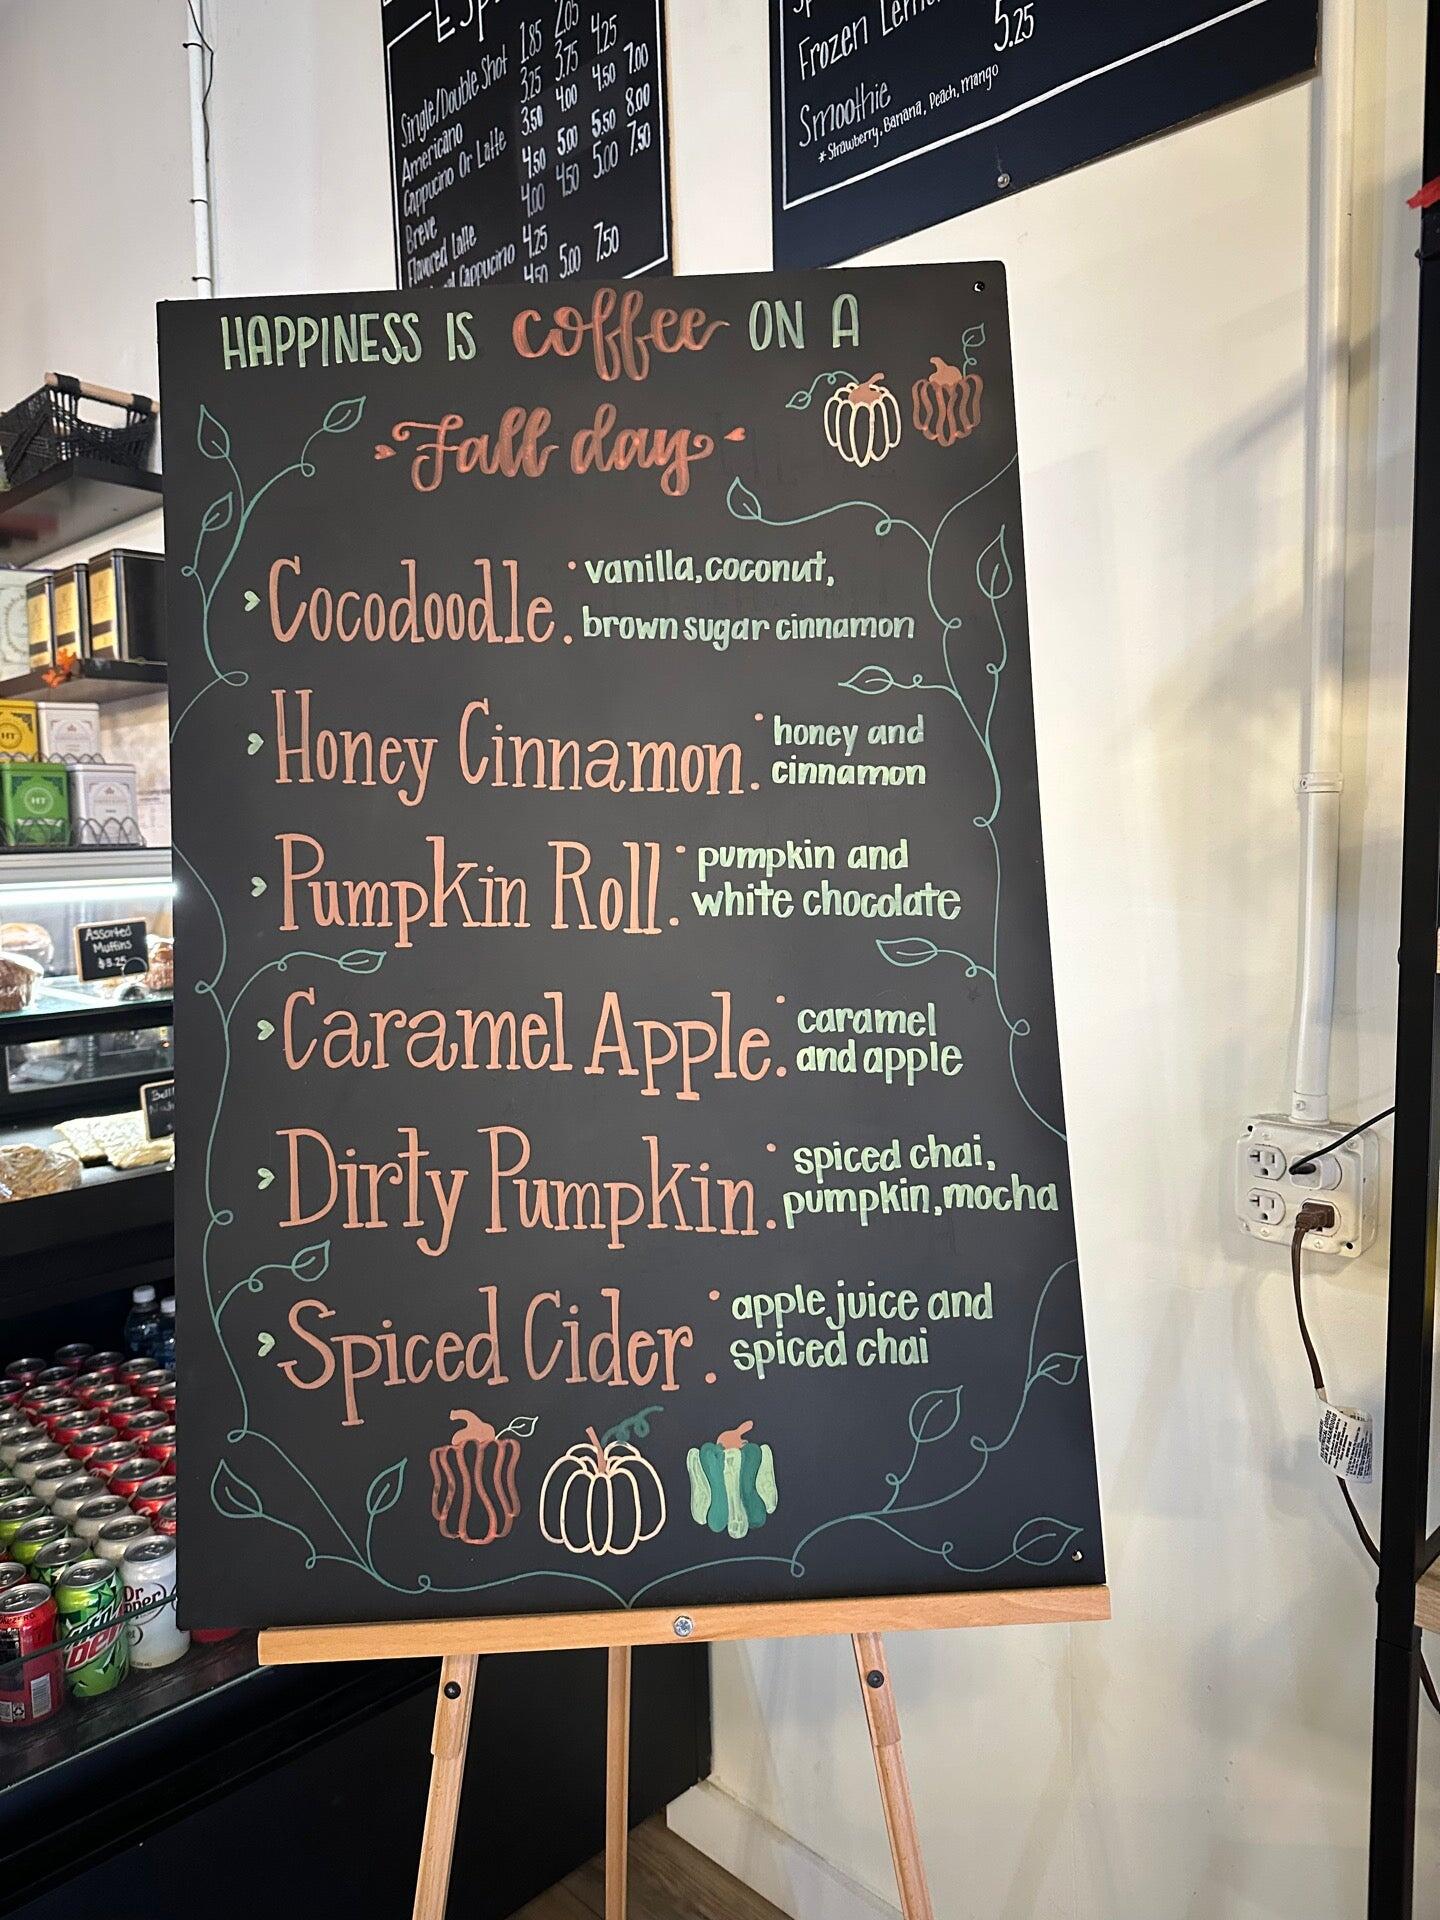 Single/Double Shot 1.85 2.05
Americano 3.25 3.75 4.25
Cappucino Or Latte 3.50 4.00 4.50 7.00
Breve 4.50 5.00 5.50 8.00
Flavored Latte 4.00 4.50 5.00 7.50
Cappucino 4.25
4.50 5.00 7.50
Frozen
5.25
Smoothie
*Strawberry, Banana, Peach, Mango
HAPPINESS IS coffee ON A
Fall day
Cocodoodle: vanilla, coconut,
brown sugar cinnamon
Honey Cinnamon: honey and
cinnamon
Pumpkin Roll: pumpkin and
white chocolate
Caramel Apple: caramel
and apple
Dirty Pumpkin: spiced chai,
pumpkin, mocha
Spiced Cider: apple juice and
spiced chai
HT
HT
Assorted
Muffins
$3.25